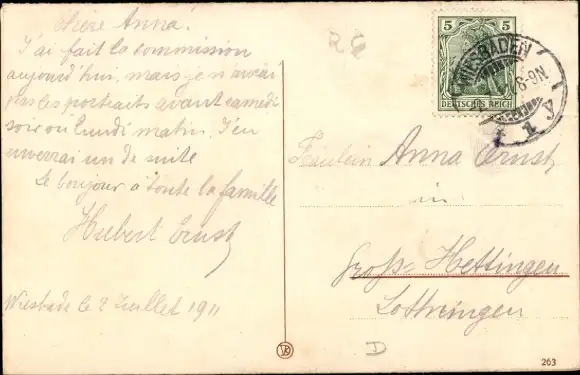 Chère Anna!
J'ai fait la commission
aujourd'hui, mais je n'aurai
pas les portraits avant samedi
soir ou lundi matin. J'en
enverrai un de suite
Le bonjour à toute la famille
Hubert Ernst
Wiesbade le 2 Juillet 1911
5 5
DEUTSCHES REICH
WIESBADEN
8-9N
1
Fräulein Anna Ernst
in
Groß-Hettingen
Lothringen
D
263